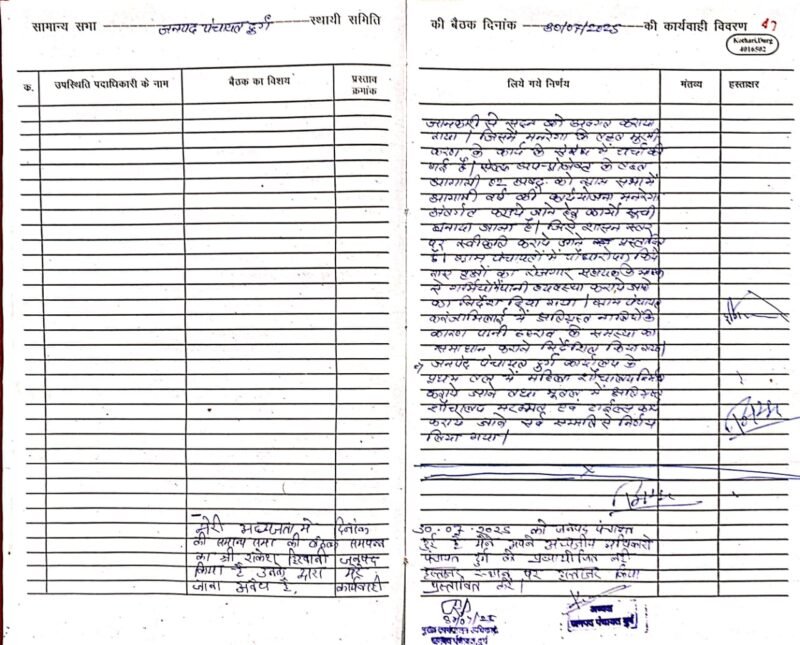 सामान्य सभा जनपद पंचायत दुर्ग स्थायी समिति
की बैठक दिनांक 30/07/2025 की कार्यवाही विवरण 47
Kothari,Durg
4016502
क्र. उपस्थिति पदाधिकारी के नाम बैठक का विषय प्रस्ताव क्रमांक
लिये गये निर्णय मंतव्य हस्ताक्षर
जानकारी से सदन को अवगत कराया
गया। जिसमें मनरेगा के तहत
करण के कार्य के संबंध में चर्चा की
गई है।
आगामी 02 अक्टू. को ग्राम सभा में
आगामी वर्ष की कार्ययोजना मनरेगा
अंतर्गत कराये जाने हेतु कार्यों सूची
बनाया जाना है। जिसे शासन स्तर
पर स्वीकृति कराये जाने प्रस्तावित
है। ग्राम पंचायतों में पौधारोपण किये
गए का रोजगार सहायक के
से पानी व्यवस्था कराये जाने
का निर्देश दिया गया। ग्राम पंचायत
करंजाभिलाई में क्षतिग्रस्त नालियों के
कारण पानी ठहराव के समस्या का
समाधान कराने निर्देशित किया गया।
जनपद पंचायत दुर्ग कार्यालय के
प्रथम तल में महिला शौचालय निर्माण
कराये जाने तथा भूतल में क्षतिग्रस्त
शौचालय मरम्मत एवं टाईल्स कार्य
कराये जाने सर्व सम्मति से निर्णय
लिया गया।
मेरी अध्यक्षता में दिनांक 30.07.2025 को जनपद पंचायत
की सामान्य सभा की बैठक सम्पन्न हुई है मैंने अपने
का श्री राकेश हिरवानी जनपद पंचायत दुर्ग के नहीं
किया है उनके द्वारा मेरे हस्ताक्षर स्थान पर हस्ताक्षर किया
जाना अवैध है, कार्यवाही प्रस्तावित करें।
30/07/25
अध्यक्ष
जनपद पंचायत दुर्ग
मुख्य कार्यपालन अधिकारी
जनपद पंचायत दुर्ग